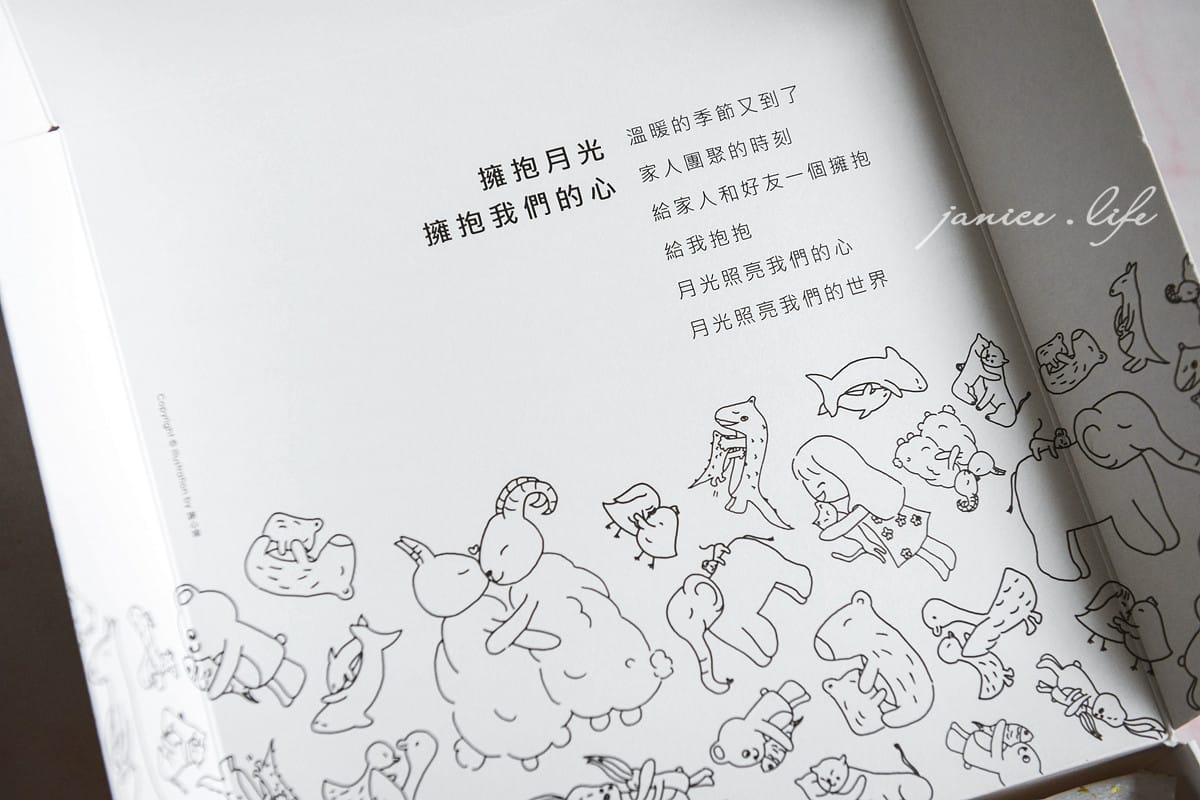 擁抱月光
擁抱我們的心
溫暖的季節又到了
家人團聚的時刻
給家人和好友一個擁抱
給我抱抱
月光照亮我們的心
月光照亮我們的世界
janice.life
Copyright © Illustration by